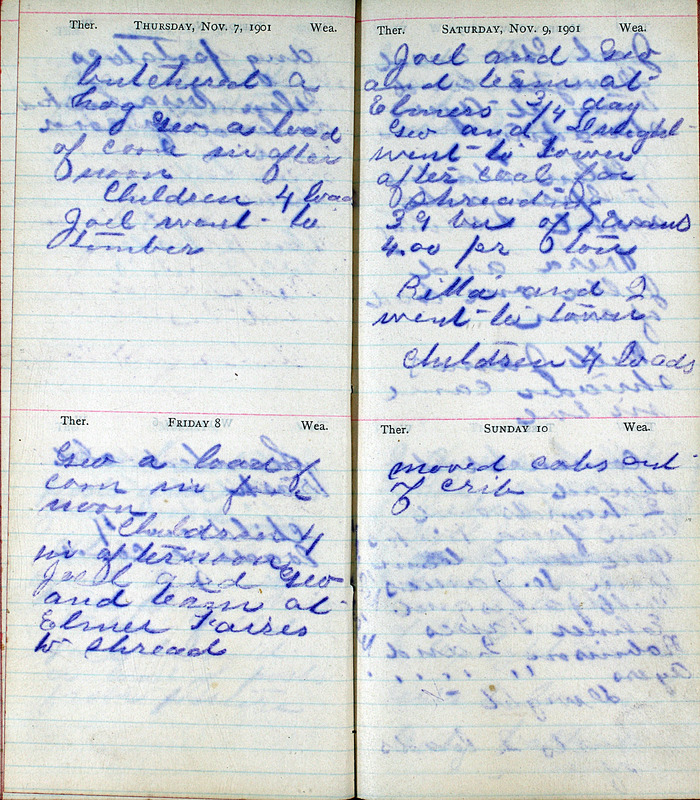 Ther. THURSDAY, NOV. 7, 1901 Wea.
butchered a
hog Geo a load
of corn in after
noon
Children 4 load
Joel went to
timber
Ther. FRIDAY 8 Wea.
Geo a load of
corn in
noon
Children 4
in afternoon
Joel and Geo
and team at
Elmer Fairies
to shread
Ther. SATURDAY, NOV. 9, 1901 Wea.
Joel and Geo
and team at
Elmers 3/4 day
Geo and Dwight
went to town
after coal for
shreading
39 bus of Evans
4.00 pr ton
Rilla and I
went to town
Children 4 loads
Ther. SUNDAY 10 Wea.
moved cobs out
of crib